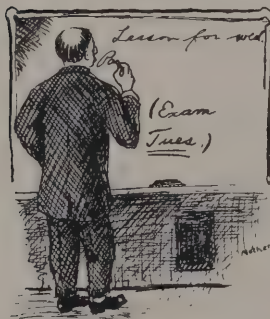 Lesson for wed.
(Exam
Tues.)